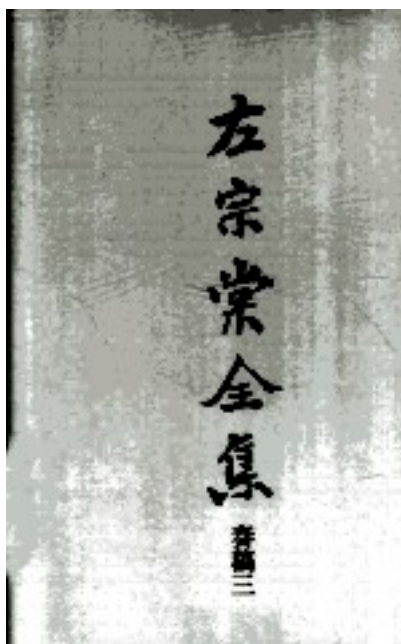 左宗棠全集
奏稿三